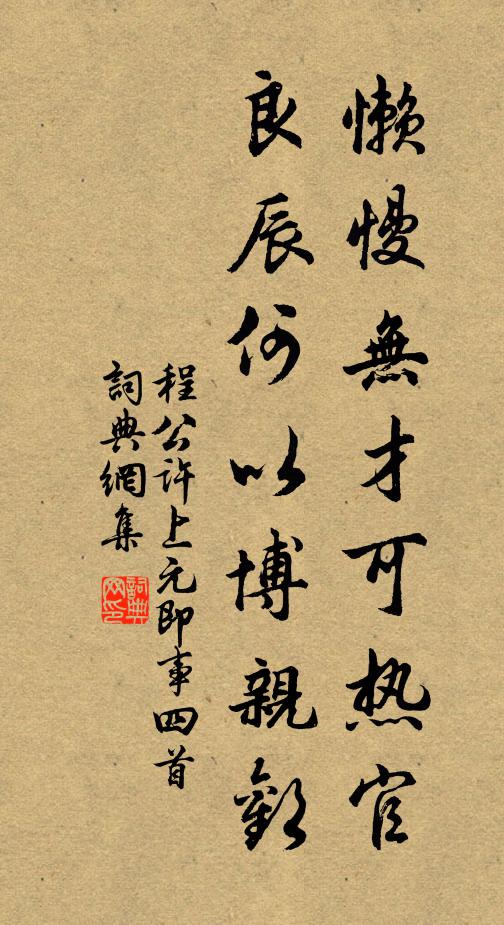 懒慢無才可热官
良辰何以博親歡
程公許上元即事四首
詞典網集
詞典網印